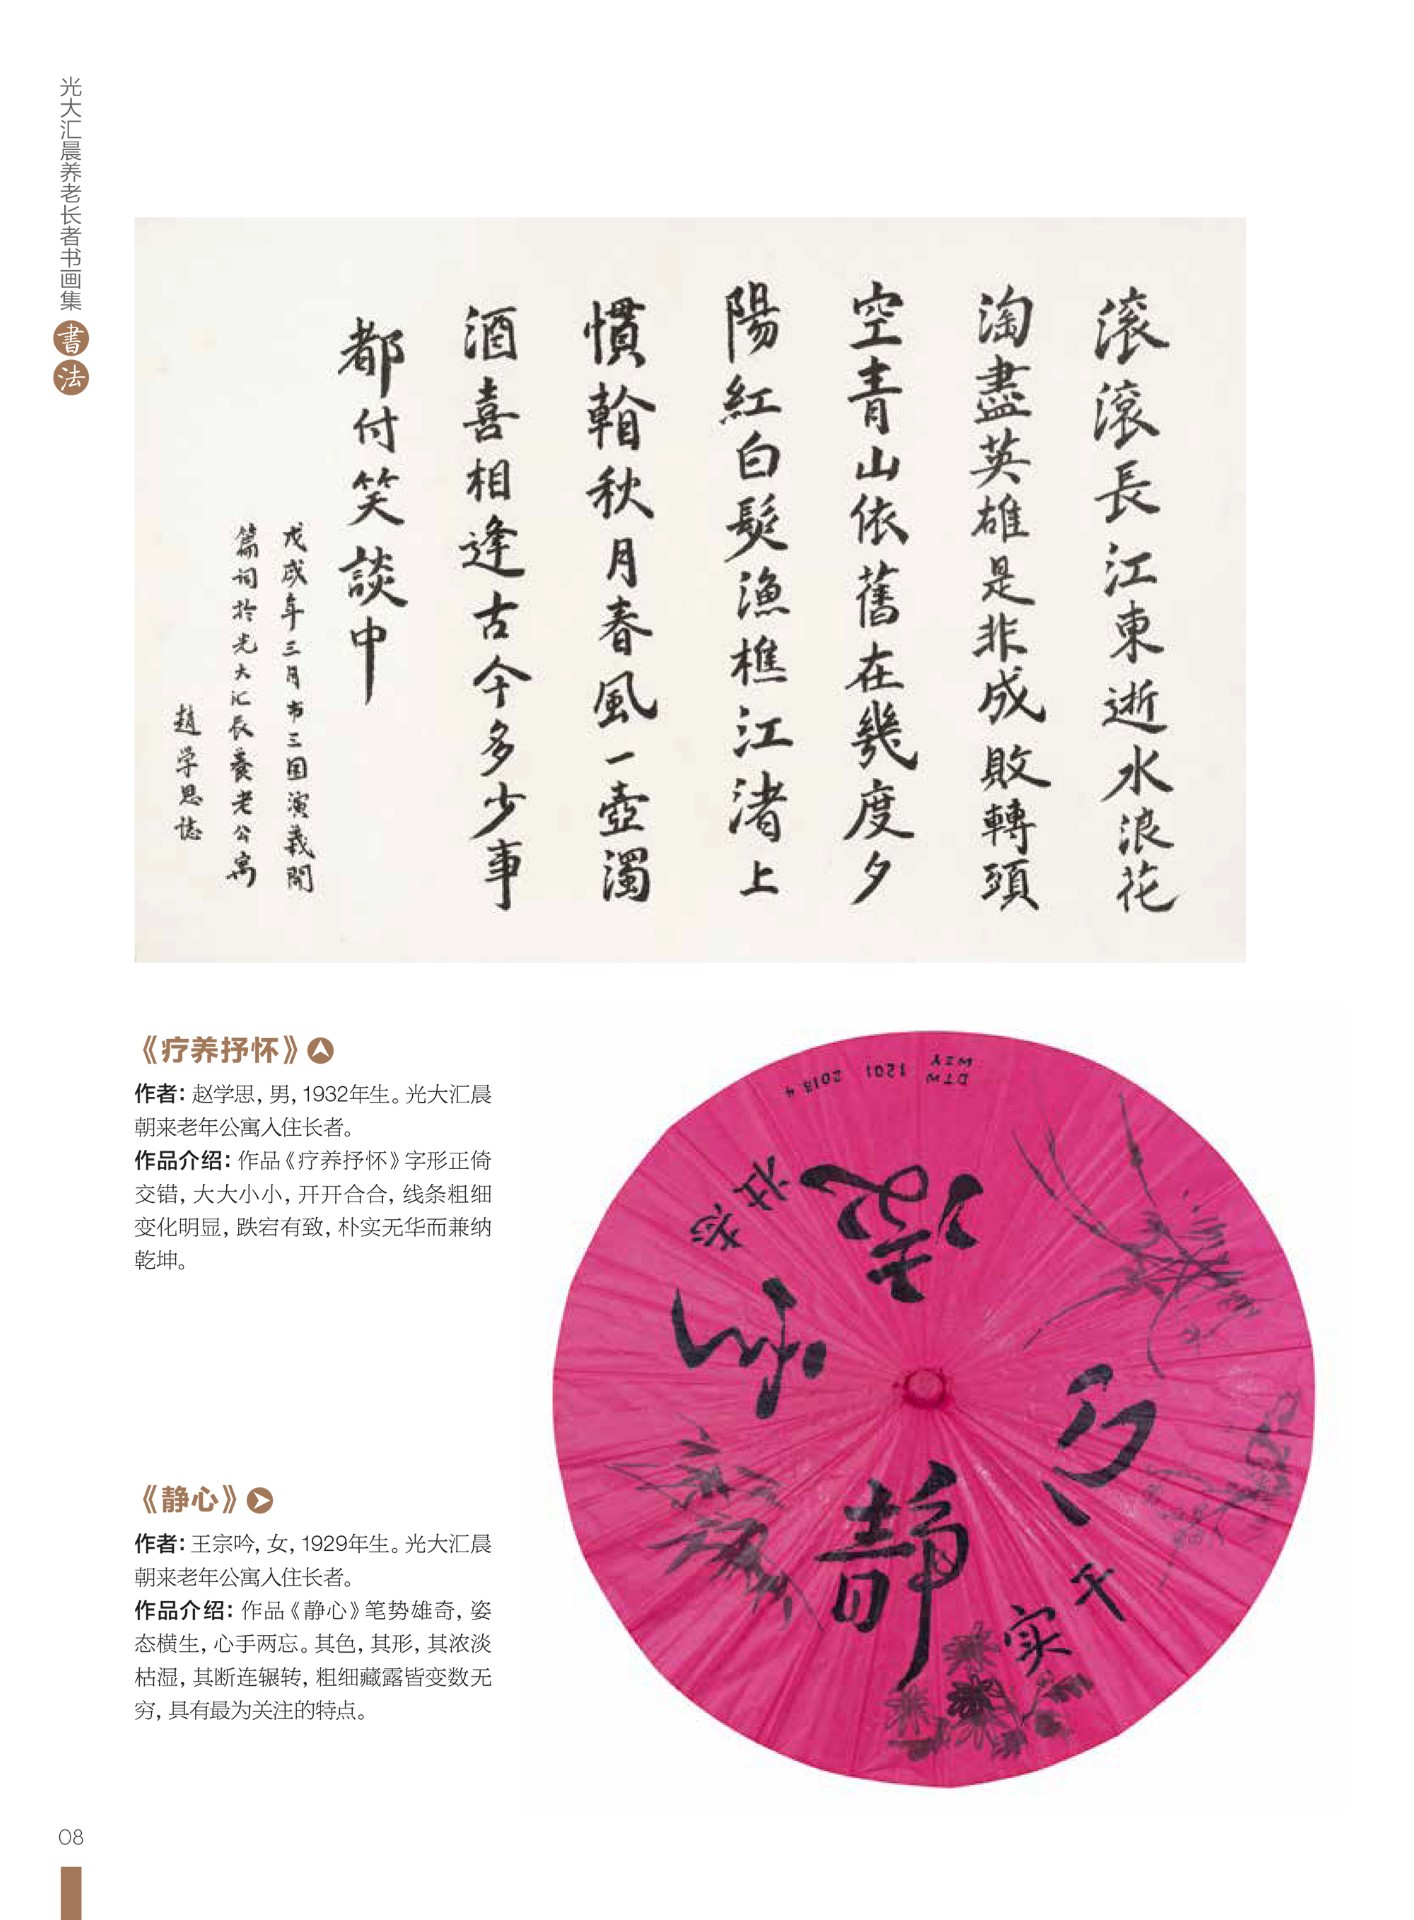 光大汇晨养老长者书画集
書法
滚滚長江東逝水浪花
淘盡英雄是非成敗轉頭
空青山依舊在幾度夕
陽紅白髮漁樵江渚上
慣看秋月春風一壺濁
酒喜相逢古今多少事
都付笑談中
戊戌年三月书三国演義開
篇词於光大汇晨養老公寓
趙学思誌
《疗养抒怀》
作者：赵学思，男，1932年生。光大汇晨
朝来老年公寓入住长者。
作品介绍：作品《疗养抒怀》字形正倚
交错，大大小小，开开合合，线条粗细
变化明显，跌宕有致，朴实无华而兼纳
乾坤。
WZY
DTW 1201 2018.4
静心
《静心》
作者：王宗吟，女，1929年生。光大汇晨
朝来老年公寓入住长者。
作品介绍：作品《静心》笔势雄奇，姿
态横生，心手两忘。其色，其形，其浓淡
枯湿，其断连辗转，粗细藏露皆变数无
穷，具有最为关注的特点。
08